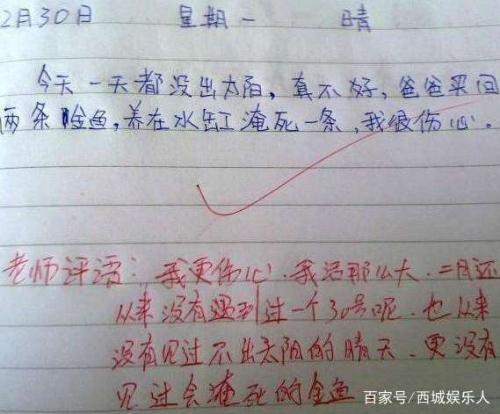 2月30日 星期一 晴
今天一天都没出太阳，真不好，爸爸买回
两条金鱼，养在水缸淹死一条，我很伤心．
老师评语：我更伤心．我活那么大．二月还
从来没有遇到过一个30号呢．也从来
没有见过不出太阳的晴天．更没有
见过会淹死的金鱼
百家号/西城娱乐人